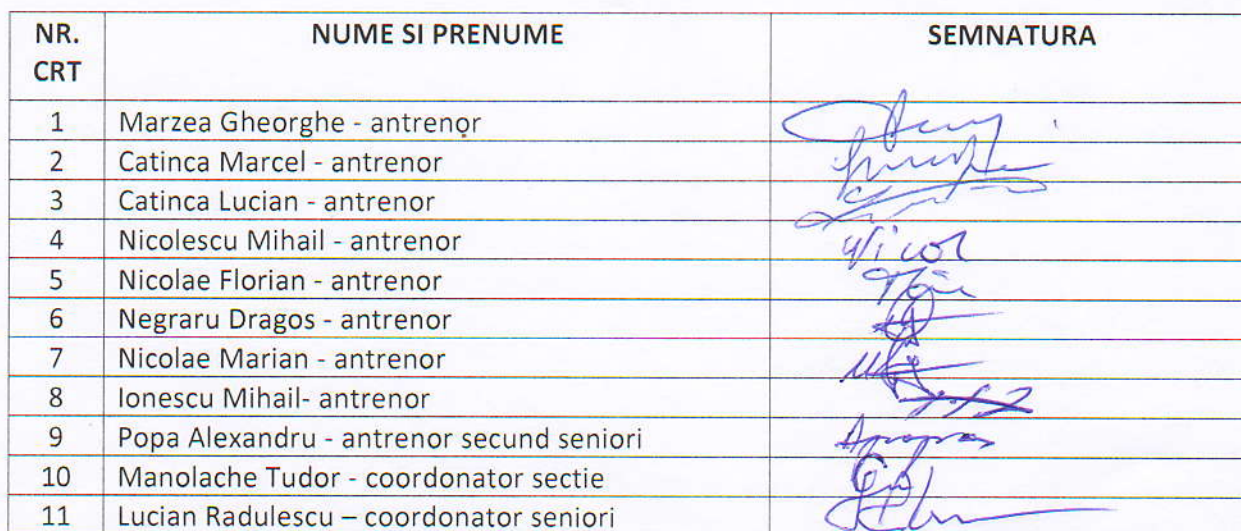 NR. CRT NUME SI PRENUME SEMNATURA
1 Marzea Gheorghe - antrenor
2 Catinca Marcel - antrenor
3 Catinca Lucian - antrenor
4 Nicolescu Mihail - antrenor
5 Nicolae Florian - antrenor
6 Negraru Dragos - antrenor
7 Nicolae Marian - antrenor
8 Ionescu Mihail- antrenor
9 Popa Alexandru - antrenor secund seniori
10 Manolache Tudor - coordonator sectie
11 Lucian Radulescu – coordonator seniori